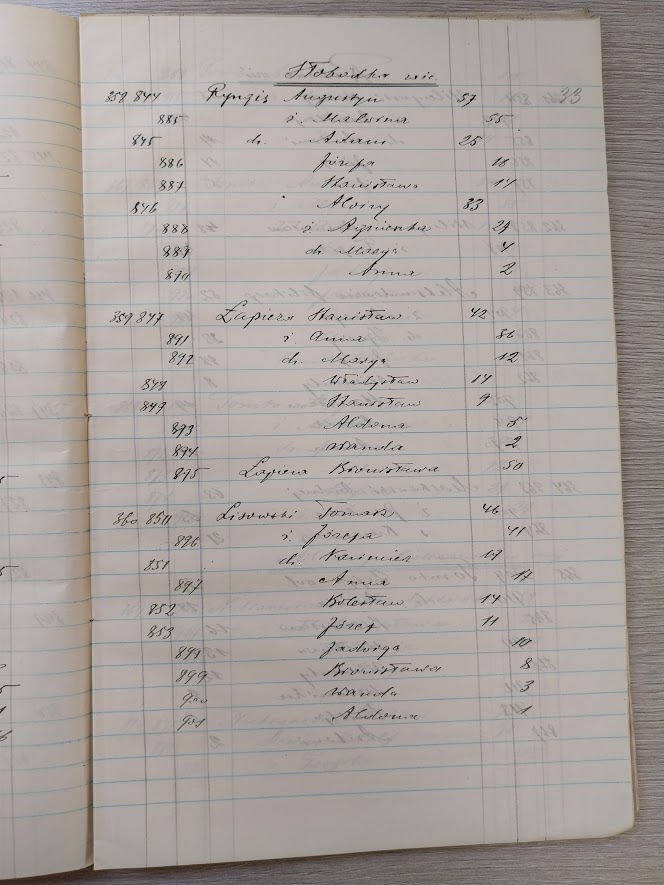 Słobodka wie.
33
358 844 Ryngis Augustyn 57
885 ż. Malwina 55
845 dz. Adam 25
886 Józefa 18
887 Stanisława 14
846 Alojzy 33
888 ż. Agnieszka 27
889 dz. Marja 4
890 Anna 2
359 847 Łapicz Stanisław 42
891 ż. Anna 36
892 dz. Marja 12
848 Władysław 14
849 Stanisław 9
893 Aldona 5
894 Wanda 2
895 Bronisława 50
360 850 Lisowski Tomasz 46
896 ż. Józefa 41
851 dz. Kazimierz 19
897 Anna 17
852 Bolesław 14
853 Józef 11
898 Jadwiga 10
899 Bronisława 8
900 Wanda 3
901 Aldona 1